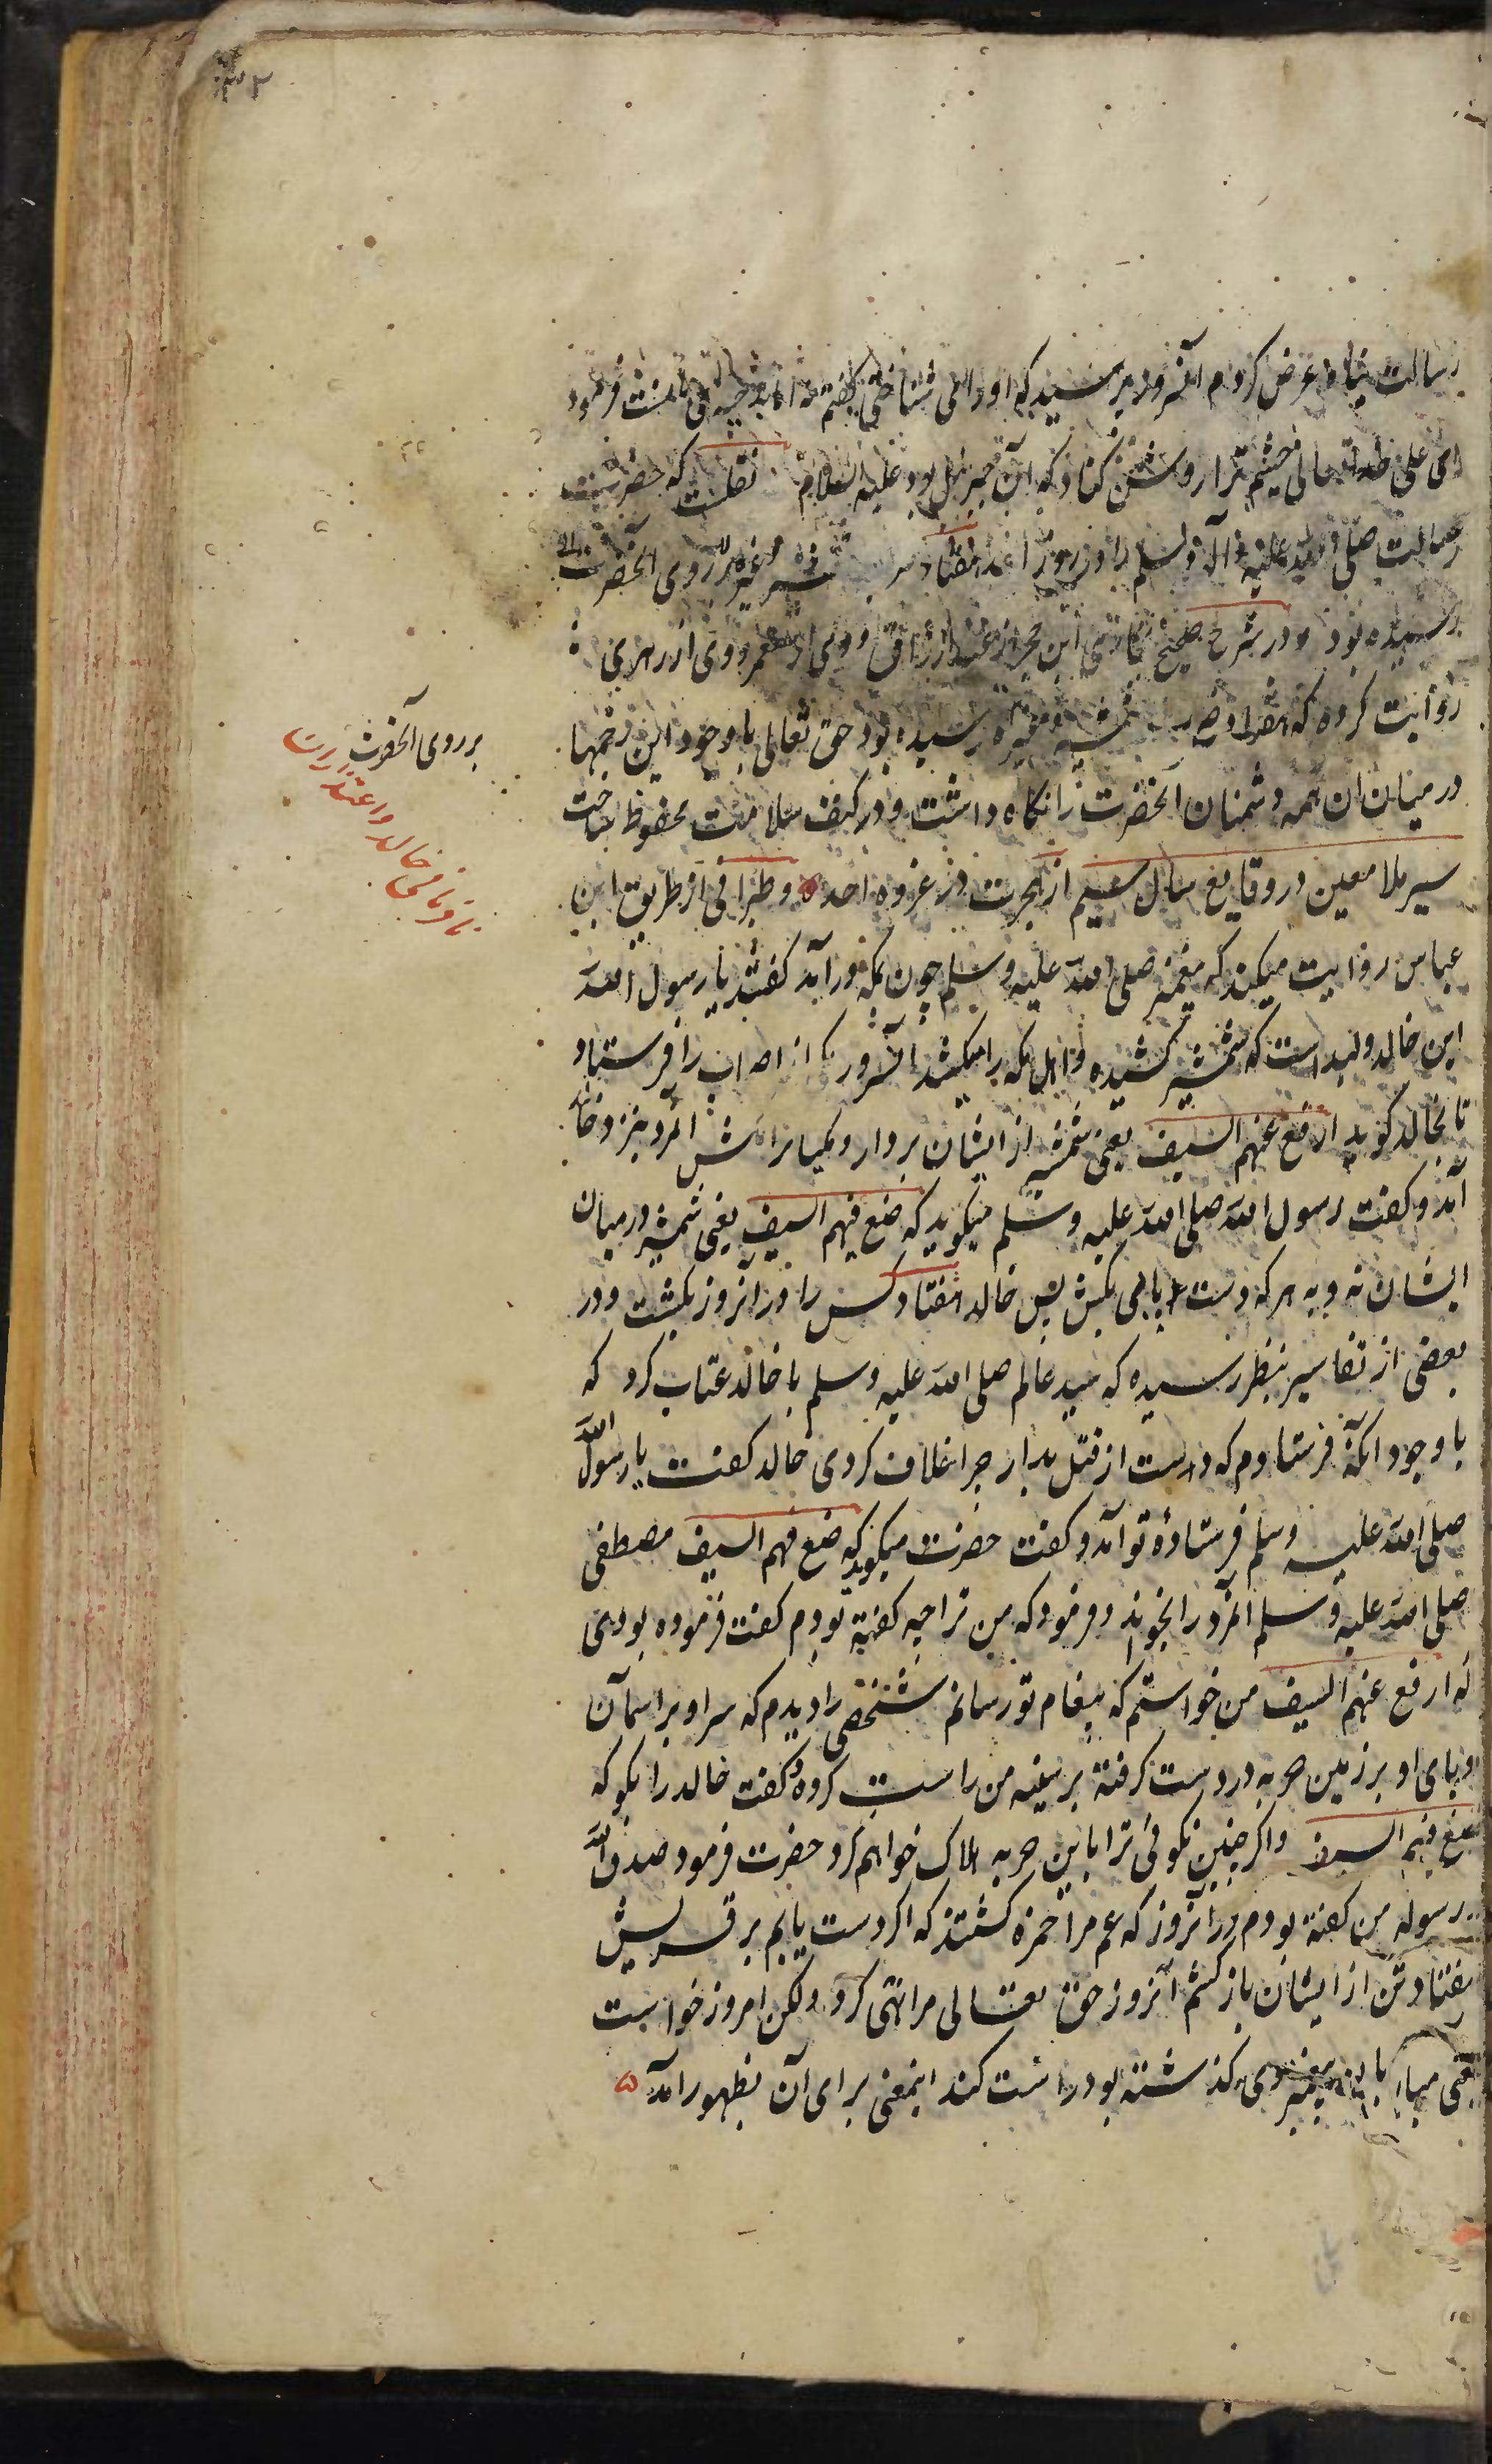 ۳۲
رسالت پناه عرض کردم آنسرور پرسید که او را می شناختی گفتم فرمود
ای علی خدایتعالی چشم ترا روشن کناد که آن جبرئیل بود علیه السلام نقلست که حضرت
رسالت صلی الله علیه و آله و سلم را در روز احد هفتاد شمشیر و غیره بر روی آنحضرت
رسیده بود و در شرح صحیح بخاری ابن حجر از عبد الرزاق و وی از معمر و وی از زهری
روایت کرده که هفتاد ضرب شمشیر و غیره رسیده بود حق تعالی با وجود این زخمها
در میان ان همه دشمنان آنحضرت را نکاه داشت و در کنف سلامت محفوظ ساخت
سیر ملا معین در وقایع سال سیم از هجرت در غزوه احد ه و طبرانی از طریق ابن
عباس روایت میکند که پیغمبر صلی الله علیه و سلم چون بمکه در آمد کفتند یا رسول الله
این خالد ولید است که شمشیر کشیده و اهل مکه را میکشد آنسرور یکی از اصحاب را فرستاد
تا بخالد کوید ارفع عنهم السیف یعنی شمشیر از ایشان بردار و آنمرد نزد خالد
آمد و کفت رسول الله صلی الله علیه و سلم میکوید که ضع فیهم السیف یعنی شمشیر در میان
ایشان نه و به هر که دست یابی بکش پس خالد هفتاد کس را در آنروز بکشت و در
بعضی از تفاسیر بنظر رسیده که سید عالم صلی الله علیه و سلم با خالد عتاب کرد که
با وجود آنکه فرستادم که دست از قتل بدار چرا خلاف کردی خالد کفت یا رسول الله
صلی الله علیه و سلم فرستادهٔ تو آمد و کفت حضرت میکوید که ضع فیهم السیف مصطفی
صلی الله علیه و سلم آنمرد را بخواند و فرمود که من ترا چه کفته بودم کفت فرموده بودی
که ارفع عنهم السیف من خواستم که پیغام تو رسانم شخصی را دیدم که سر او بر آسمان
و پای او بر زمین حربه در دست کرفته بر سینه من راست کرده کفت خالد را بکو که
ضع فیهم السیف و اکر چنین نکوئی ترا باین حربه هلاک خواهم کرد حضرت فرمود صدق الله
و رسوله من کفته بودم در آنروز که عم مرا حمزه کشتند که اکر دست یابم بر قریش
هفتاد تن از ایشان باز کشم آنروز حق تعالی مرا نهی کرد ولکن امروز خواست
کذشته بود راست کند اینمعنی برای آن بظهور آمد ه
بر روی آنحضرت
نافرمانی خالد و اعتذار ان